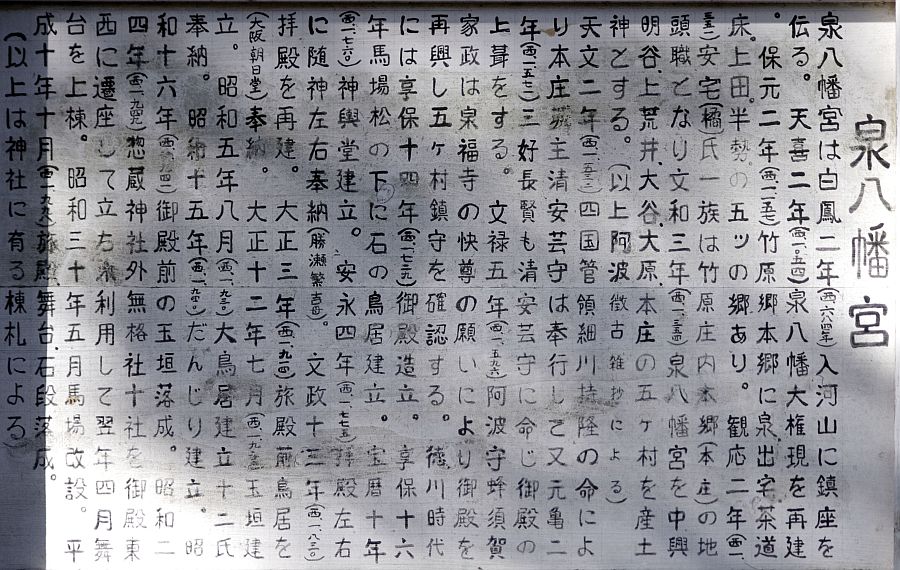 泉八幡宮
泉八幡宮は白鳳二年(西・六八四年)入河山に鎮座を
伝る。天喜二年(西・一〇五四)泉八幡大権現を再建
。保元二年(西・一一五七)竹原郷本郷に泉、出宅茶道
床、上田。半勢。の五ッ郷あり。観応二年(西・一
三五一)安宅(橘)氏一族は竹原庄内本郷(本庄)の地
頭職となり文和三年(西・一三五四)泉八幡宮を中興
明谷、上荒井、大谷、大原、本庄の五ヶ村を産土
神とする。(以上阿波徴古雑抄による)
天文二年(西・一五三三)四国管領細川持隆の命によ
り本庄城主清安芸守は奉行して又元亀二
年(西・一五七一)三好長賢も清安芸守に命じ御殿の
上葺をする。文禄五年(西・一五九六)阿波守蜂須賀
家政は泉福寺の快尊の願いにより御殿を
再興し五ヶ村鎮守を確認する。徳川時代
には享保十四年(西・一七二九)御殿造立。享保十六
年馬場松の下に石の鳥居建立。宝暦十年
(西・一七六〇)神輿堂建立。安永四年(西・一七七五)拝殿左右
に随神左右奉納(勝瀬繁)。文政十三年(西・一八三〇)
拝殿を再建。大正三年(西・一九一四)旅殿前鳥居を
(大阪朝日堂)奉納。大正十二年七月(西・一九二三)玉垣建
立。昭和五年八月(西・一九三〇)大鳥居建立十二氏
奉納。昭和十五年(西・一九四〇)だんじり建立。昭
和十六年(西・一九四一)御殿前の玉垣落成。昭和二
四年(西・一九四九)惣蔵神社外無格社十社を御殿東
西に遷座して立ち木利用して翌年四月舞
台を上棟。昭和三十年五月馬場改設。平
成十年十月(西・一九九八)旅殿、舞台、石段落成。
(以上は神社に有る棟札による)